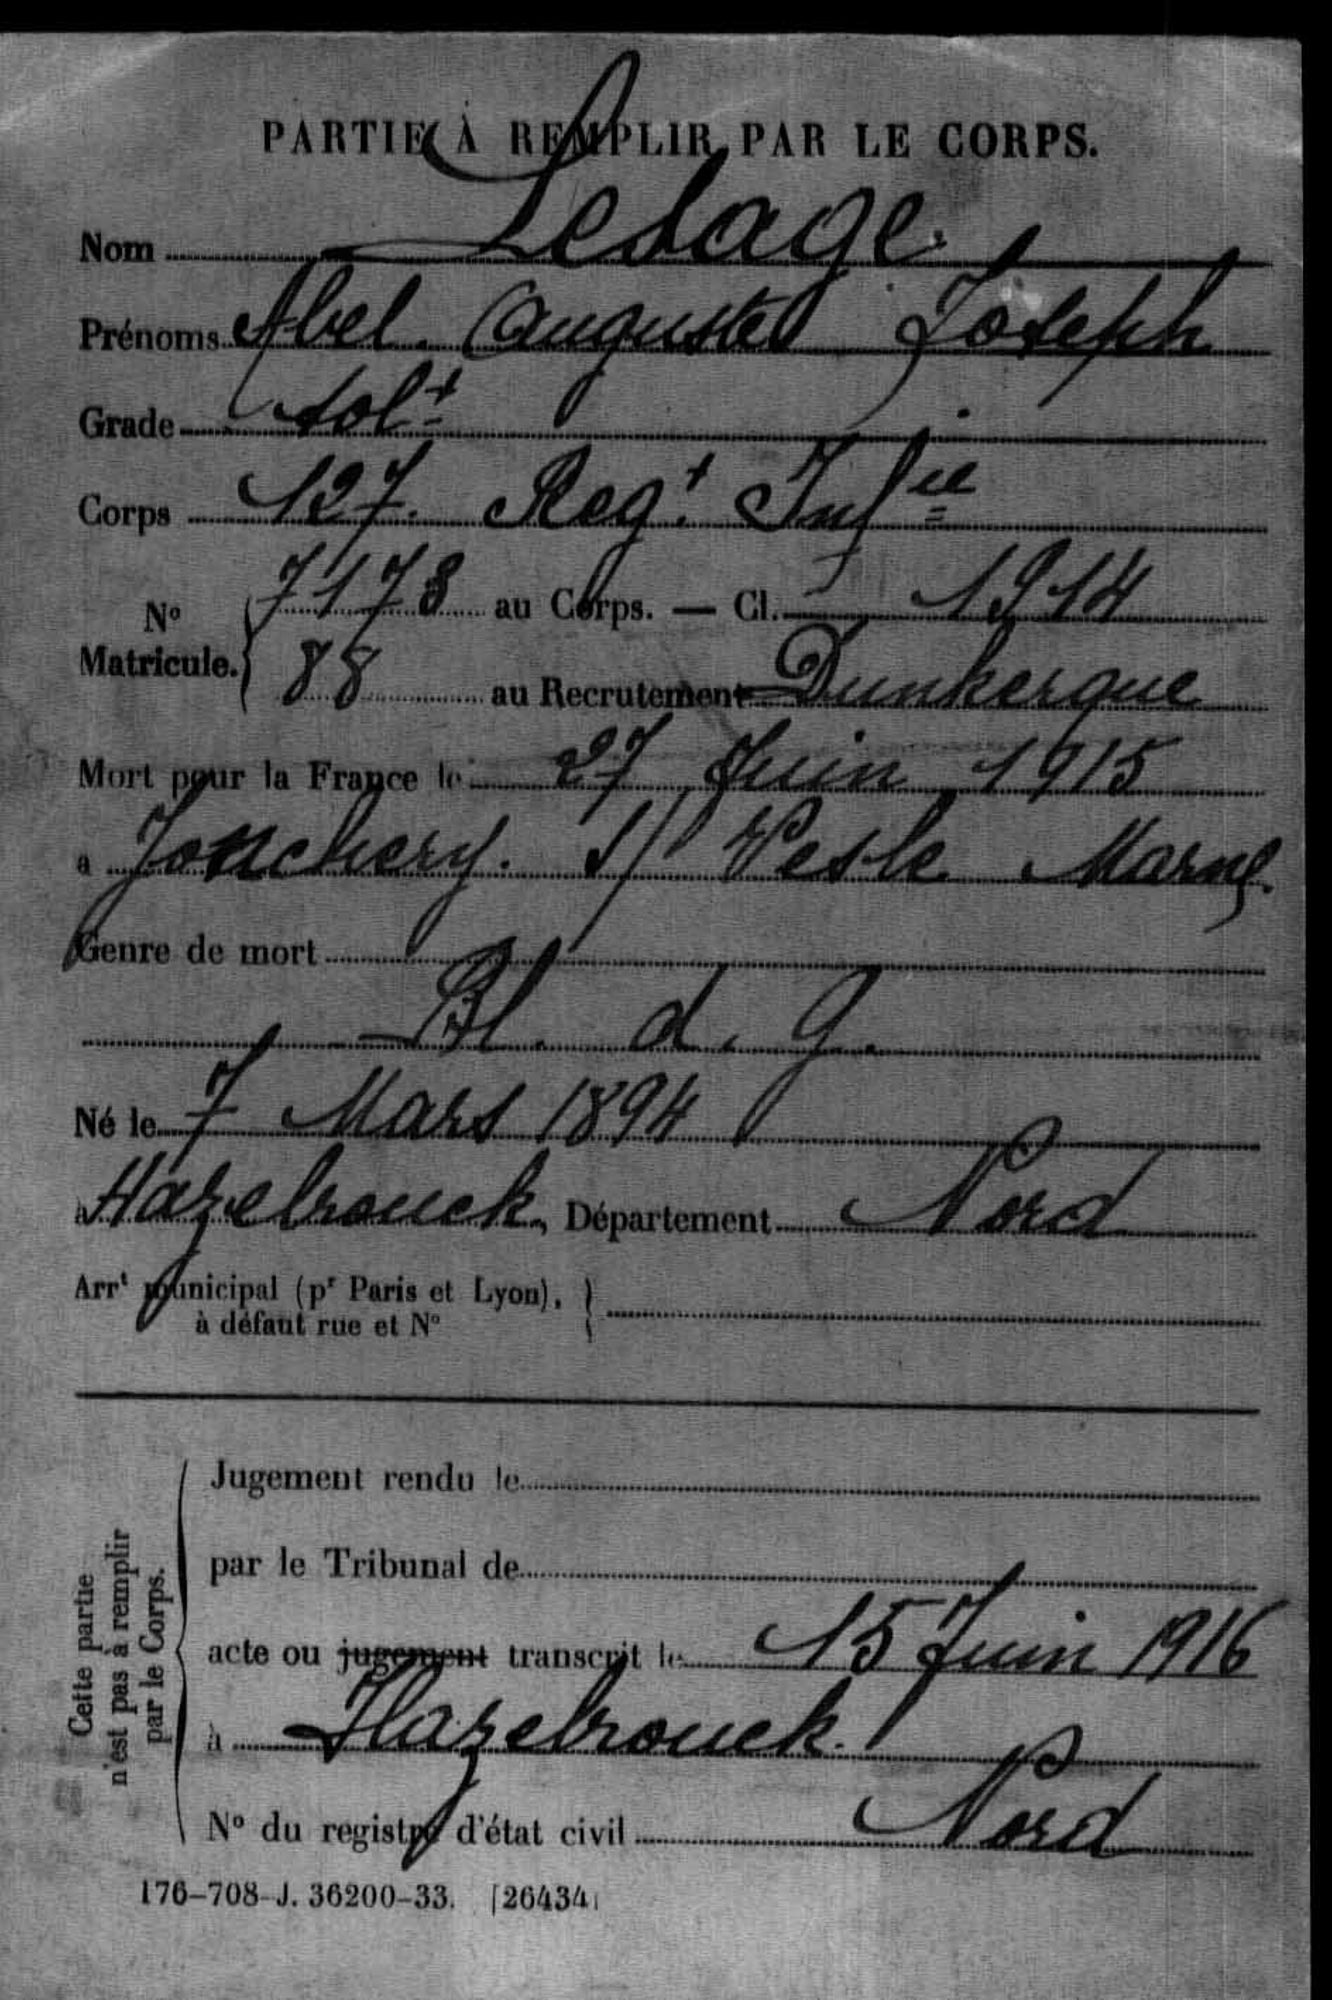 PARTIE À REMPLIR PAR LE CORPS.
Nom Lesage
Prénoms Abel Auguste Joseph
Grade solt
Corps 127. Regt. Infie
No Matricule. 7178 au Corps. — Cl. 1914
88 au Recrutement Dunkerque
Mort pour la France le 27 Juin 1915
à Jonchery. s/ Vesle Marne
Genre de mort
Bl. d. g.
Né le 7 Mars 1894
à Hazebrouck, Département Nord
Arrt municipal (pr Paris et Lyon),
à défaut rue et No
Cette partie
n'est pas à remplir
par le Corps.
Jugement rendu le
par le Tribunal de
acte ou jugement transcrit le 15 Juin 1916
à Hazebrouck.
No du registre d'état civil Nord
176-708-J. 36200-33. [26434]